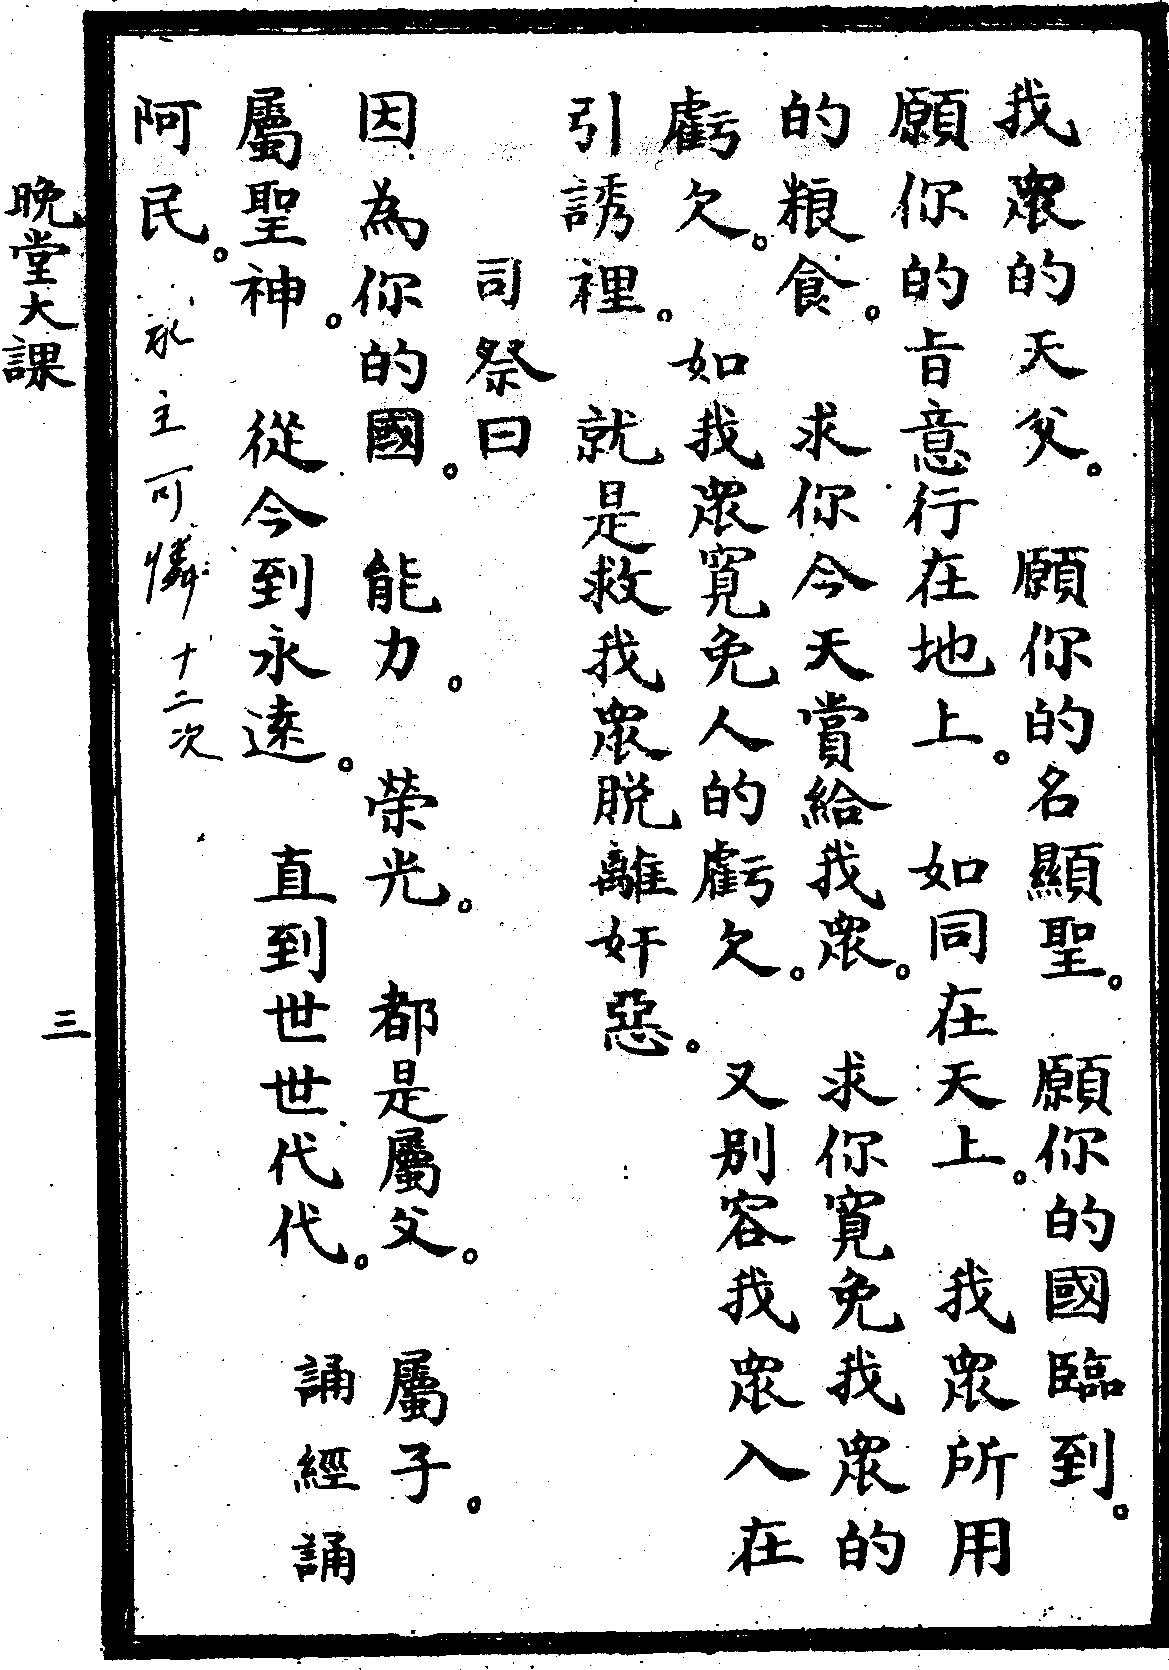 我衆的天父。願你的名顯聖。願你的國臨到。
願你的旨意行在地上。如同在天上。我衆所用
的粮食。求你今天賞給我衆。求你寬免我衆的
虧欠。如我衆寬免人的虧欠。又别容我衆入在
引誘裡。就是救我衆脱離奸惡。
司祭曰
因為你的國。能力。荣光。都是屬父。屬子。
屬聖神。從今到永遠。直到世世代代。誦經誦
阿民。求主可憐十二次
晚堂大課
三